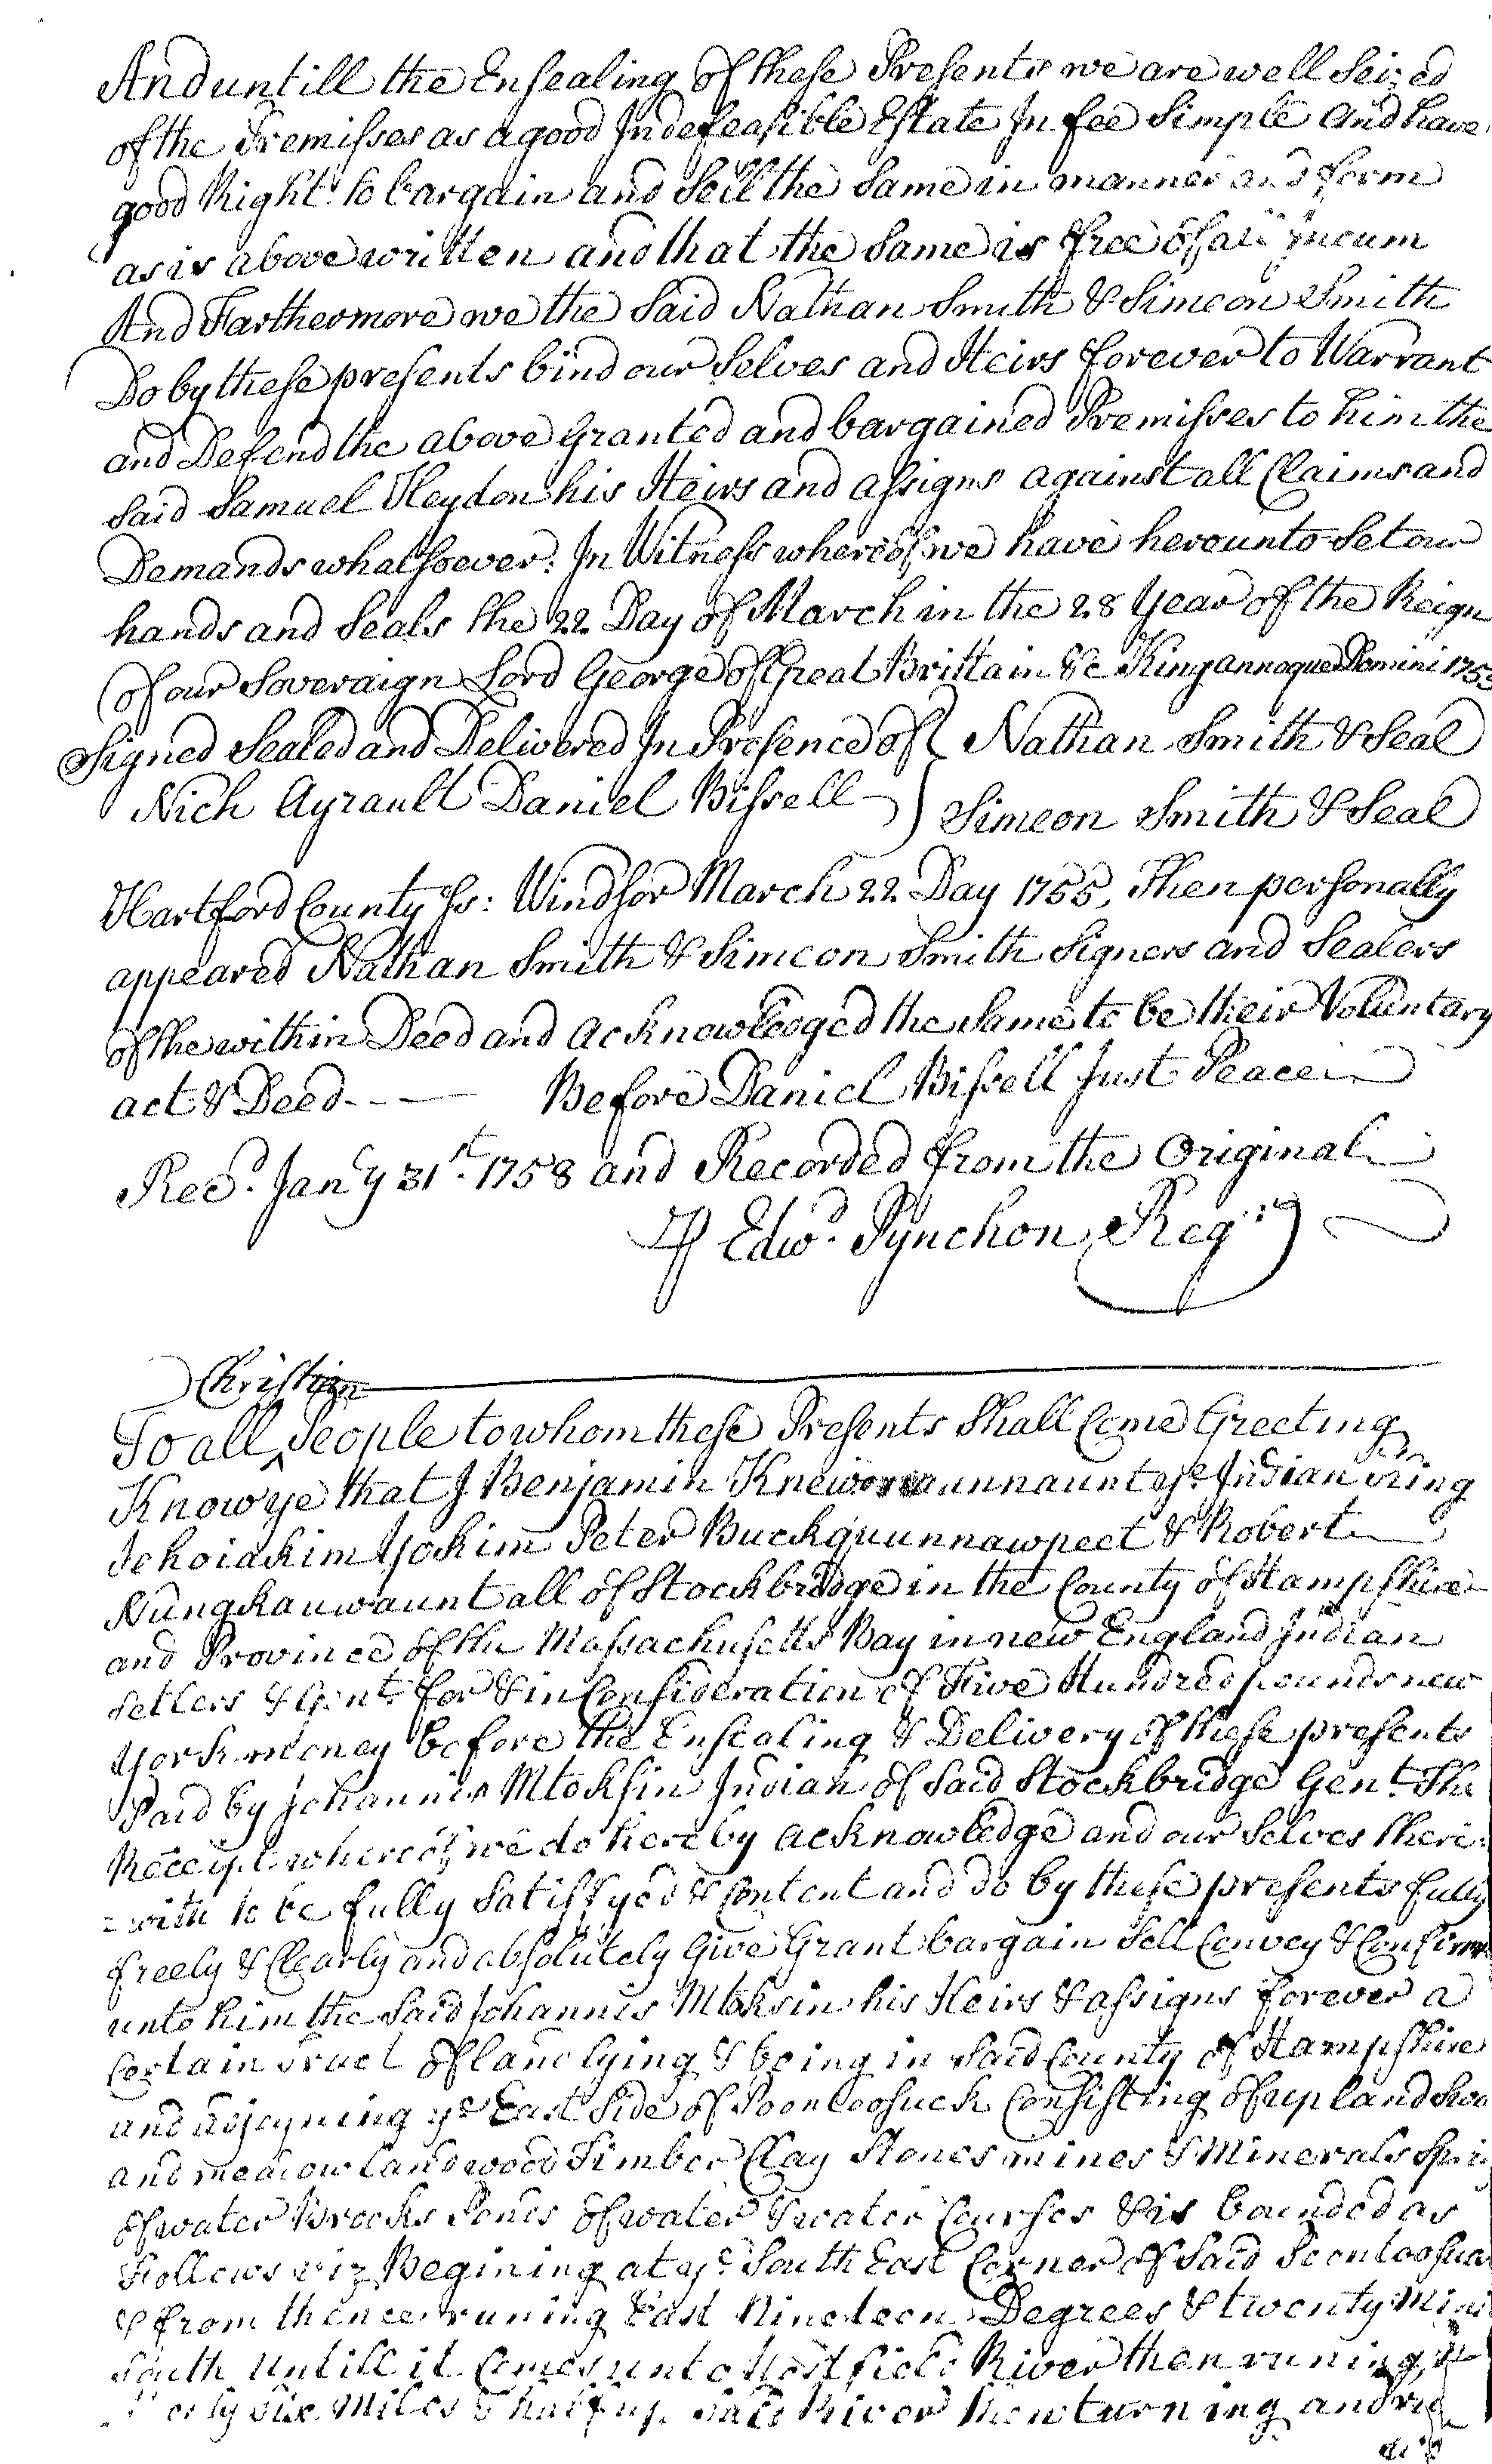 And untill the Ensealing of these Presents we are well Seized
of the Premisses as a good Indefeasible Estate In fee Simple and have
good Right to bargain and Sell the Same in manner and form
as is above written and that the Same is free of all Incum
And Farthermore we the Said Nathan Smith & Simeon Smith
Do by these presents bind our Selves and Heirs forever to Warrant
and Defend the above Granted and bargained Premisses to him the
Said Samuel Heydon his Heirs and assigns against all Claims and
Demands whatsoever. In Witness whereof we have hereunto Set our
hands and Seals the 22 Day of March in the 28 Year of the Reign
of our Soveraign Lord George of Great Brittain &c King annoque Domini 1755
Signed Sealed and Delivered In Presence of Nathan Smith & Seal
Nich Ayrault Daniel Bissell } Simeon Smith & Seal
Hartford County Ss: Windsor March 22 Day 1755, Then personally
appeared Nathan Smith & Simeon Smith Signers and Sealers
of the within Deed and acknowledged the Same to be their Voluntary
act & Deed - - — Before Daniel Bissell Just Peace
Recd. Jany 31st. 1758 and Recorded from the Original
P Edwd. Pynchon Regr
Christian
To all ^ People to whom these Presents Shall Come Greeting
Know ye that I Benjamin ye Indian King
Jehoiakim Yokim Peter Buckquunnawpeet & Robert
Nungkauwaunt all of Stockbridge in the County of Hampshire
and Province of the Massachusetts Bay in new England Indian
Setlers & Gent for & in Consideration of Five Hundred pounds new
york money before the Ensealing & Delivery of these presents
Paid by Johannis Mtoksin Indian of Said Stockbridge Gent. The
Receipt whereof we do hereby acknowledge and our Selves there=
=with to be fully Satisfyed & Content and do by these presents fully
freely & Clearly and absolutely Give Grant bargain Sell Convey & Confirm
unto him the Said Johannis Mtoksin his Heirs & assigns forever a
Certain Tract of land lying & being in Said County of Hampshire
and adjoyning ye East Side of Poontoosuck Consisting of upland
and meadow land wood Timber Clay Stones mines & Minerals
of water Brooks Ponds of water & water Courses & is bounded as
Follows viz Begining at ye South East Corner of Said
& from thence runing East Nineteen Degrees & twenty
South Untill it Comes unto River then runing
Six Miles & half up said River then turning and